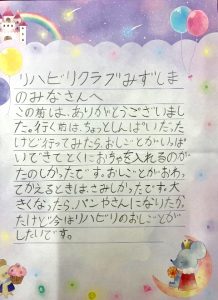 リハビリクラブみずしま
のみなさんへ
この前は、ありがとうございまし
た。行く前は、ちょっとしんぱいだった
けど行ってみたら、おしごとがいっぱ
いできてとくにおちゃを入れるのが
たのしかったです。おしごとがおわっ
てかえるときは、さみしかったです。大
きくなったら、パンやさんになりたか
ったけど今はリハビリのおしごとが
したいです。